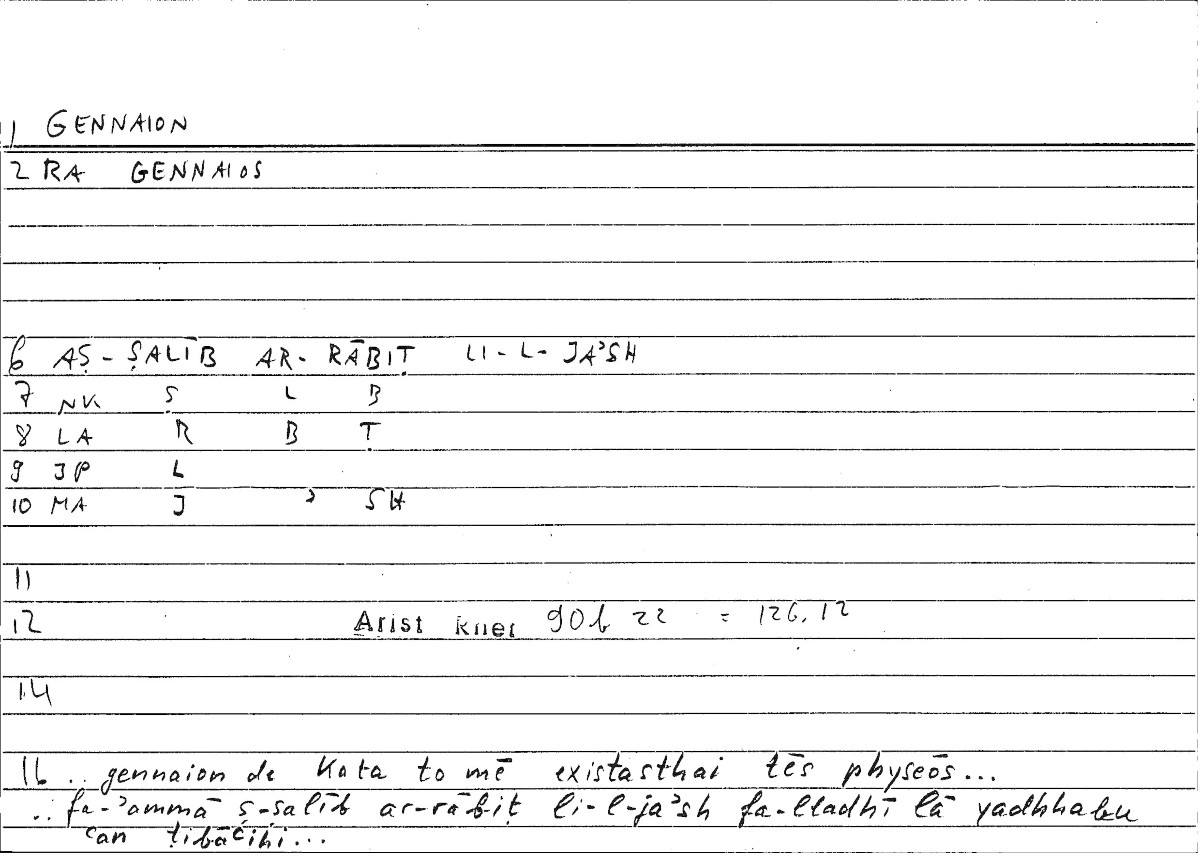 1 GENNAION
2 RA GENNAIOS
6 AṢ-ṢALĪB AR-RĀBIṬ LI-L-JAʾSH
7 NK Ṣ L B
8 LA R B Ṭ
9 JP L
10 MA J ʾ SH
11
12 Arist Rhet 90b 22 = 126,12
14
16 .. gennaion de kata to mē existasthai tēs physeōs...
.. fa-ʾammā ṣ-ṣalīb ar-rābiṭ li-l-jaʾsh fa-lladhī lā yadhhabu
ʿan ṭibāʿihi...